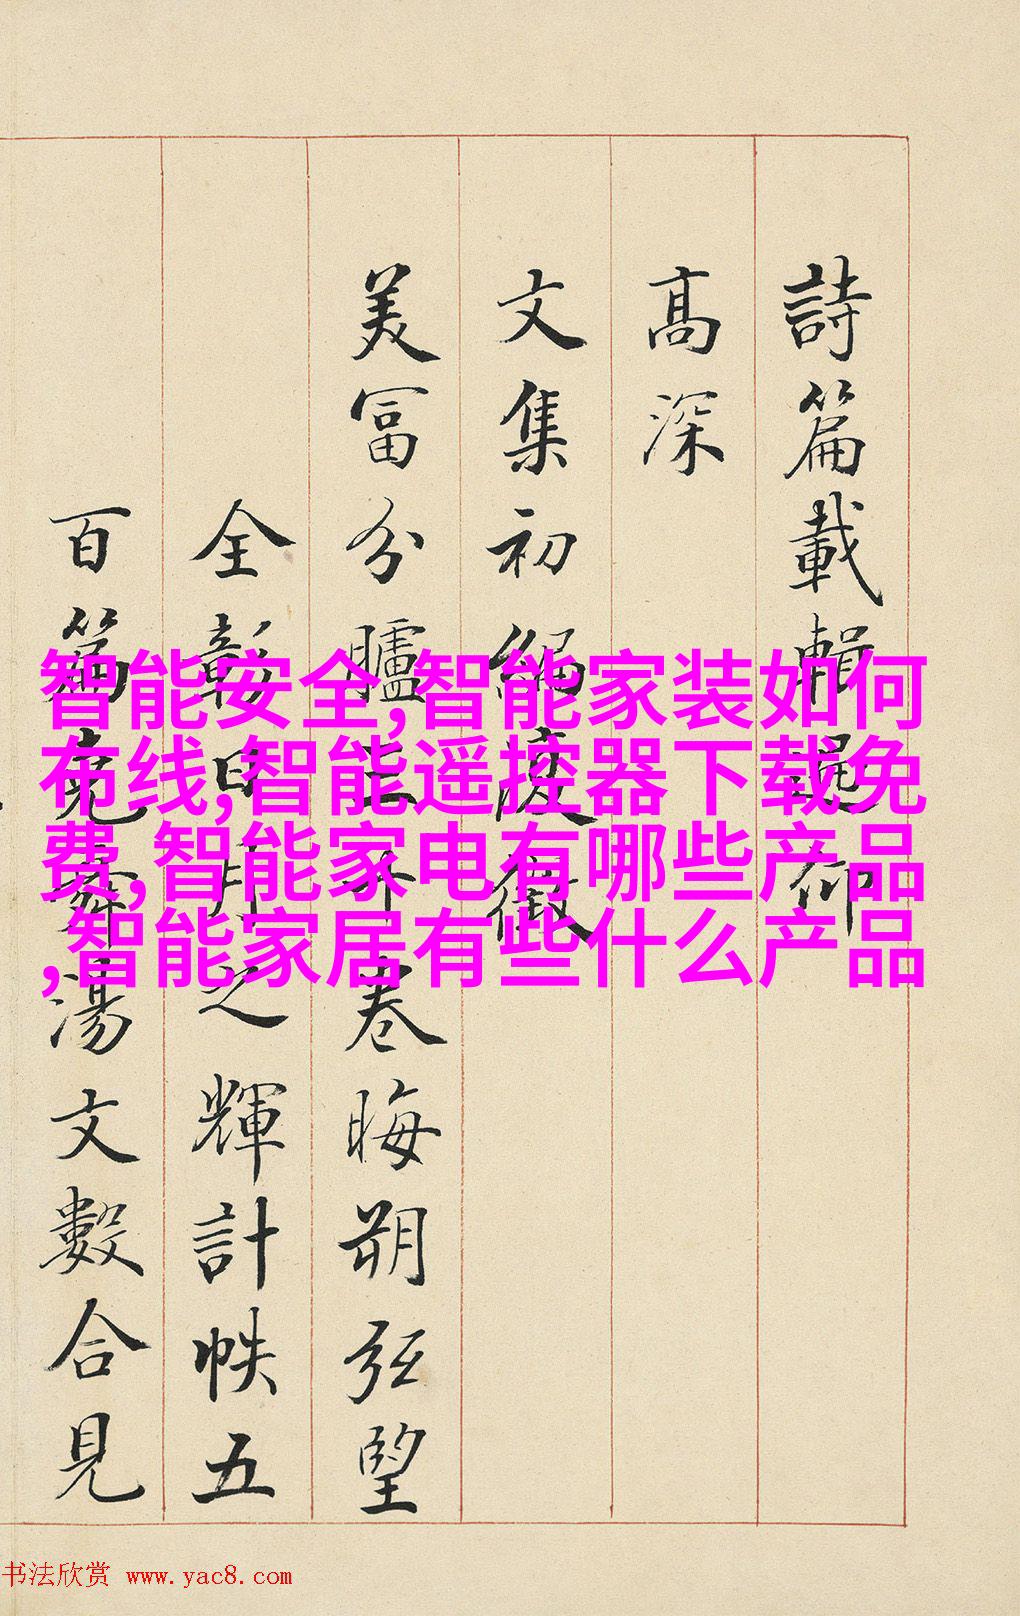 詩篇載輯還仰
高深
文集初編溲徵
美富分臚三十卷晦朔弦望
全彰日月之輝計帙五
百篇兔舞湯文數合見
智能安全,智能家装如何
布线,智能遥控器下载免
费,智能家电有哪些产品
,智能家居有些什么产品
书法欣赏 www.yac8.com